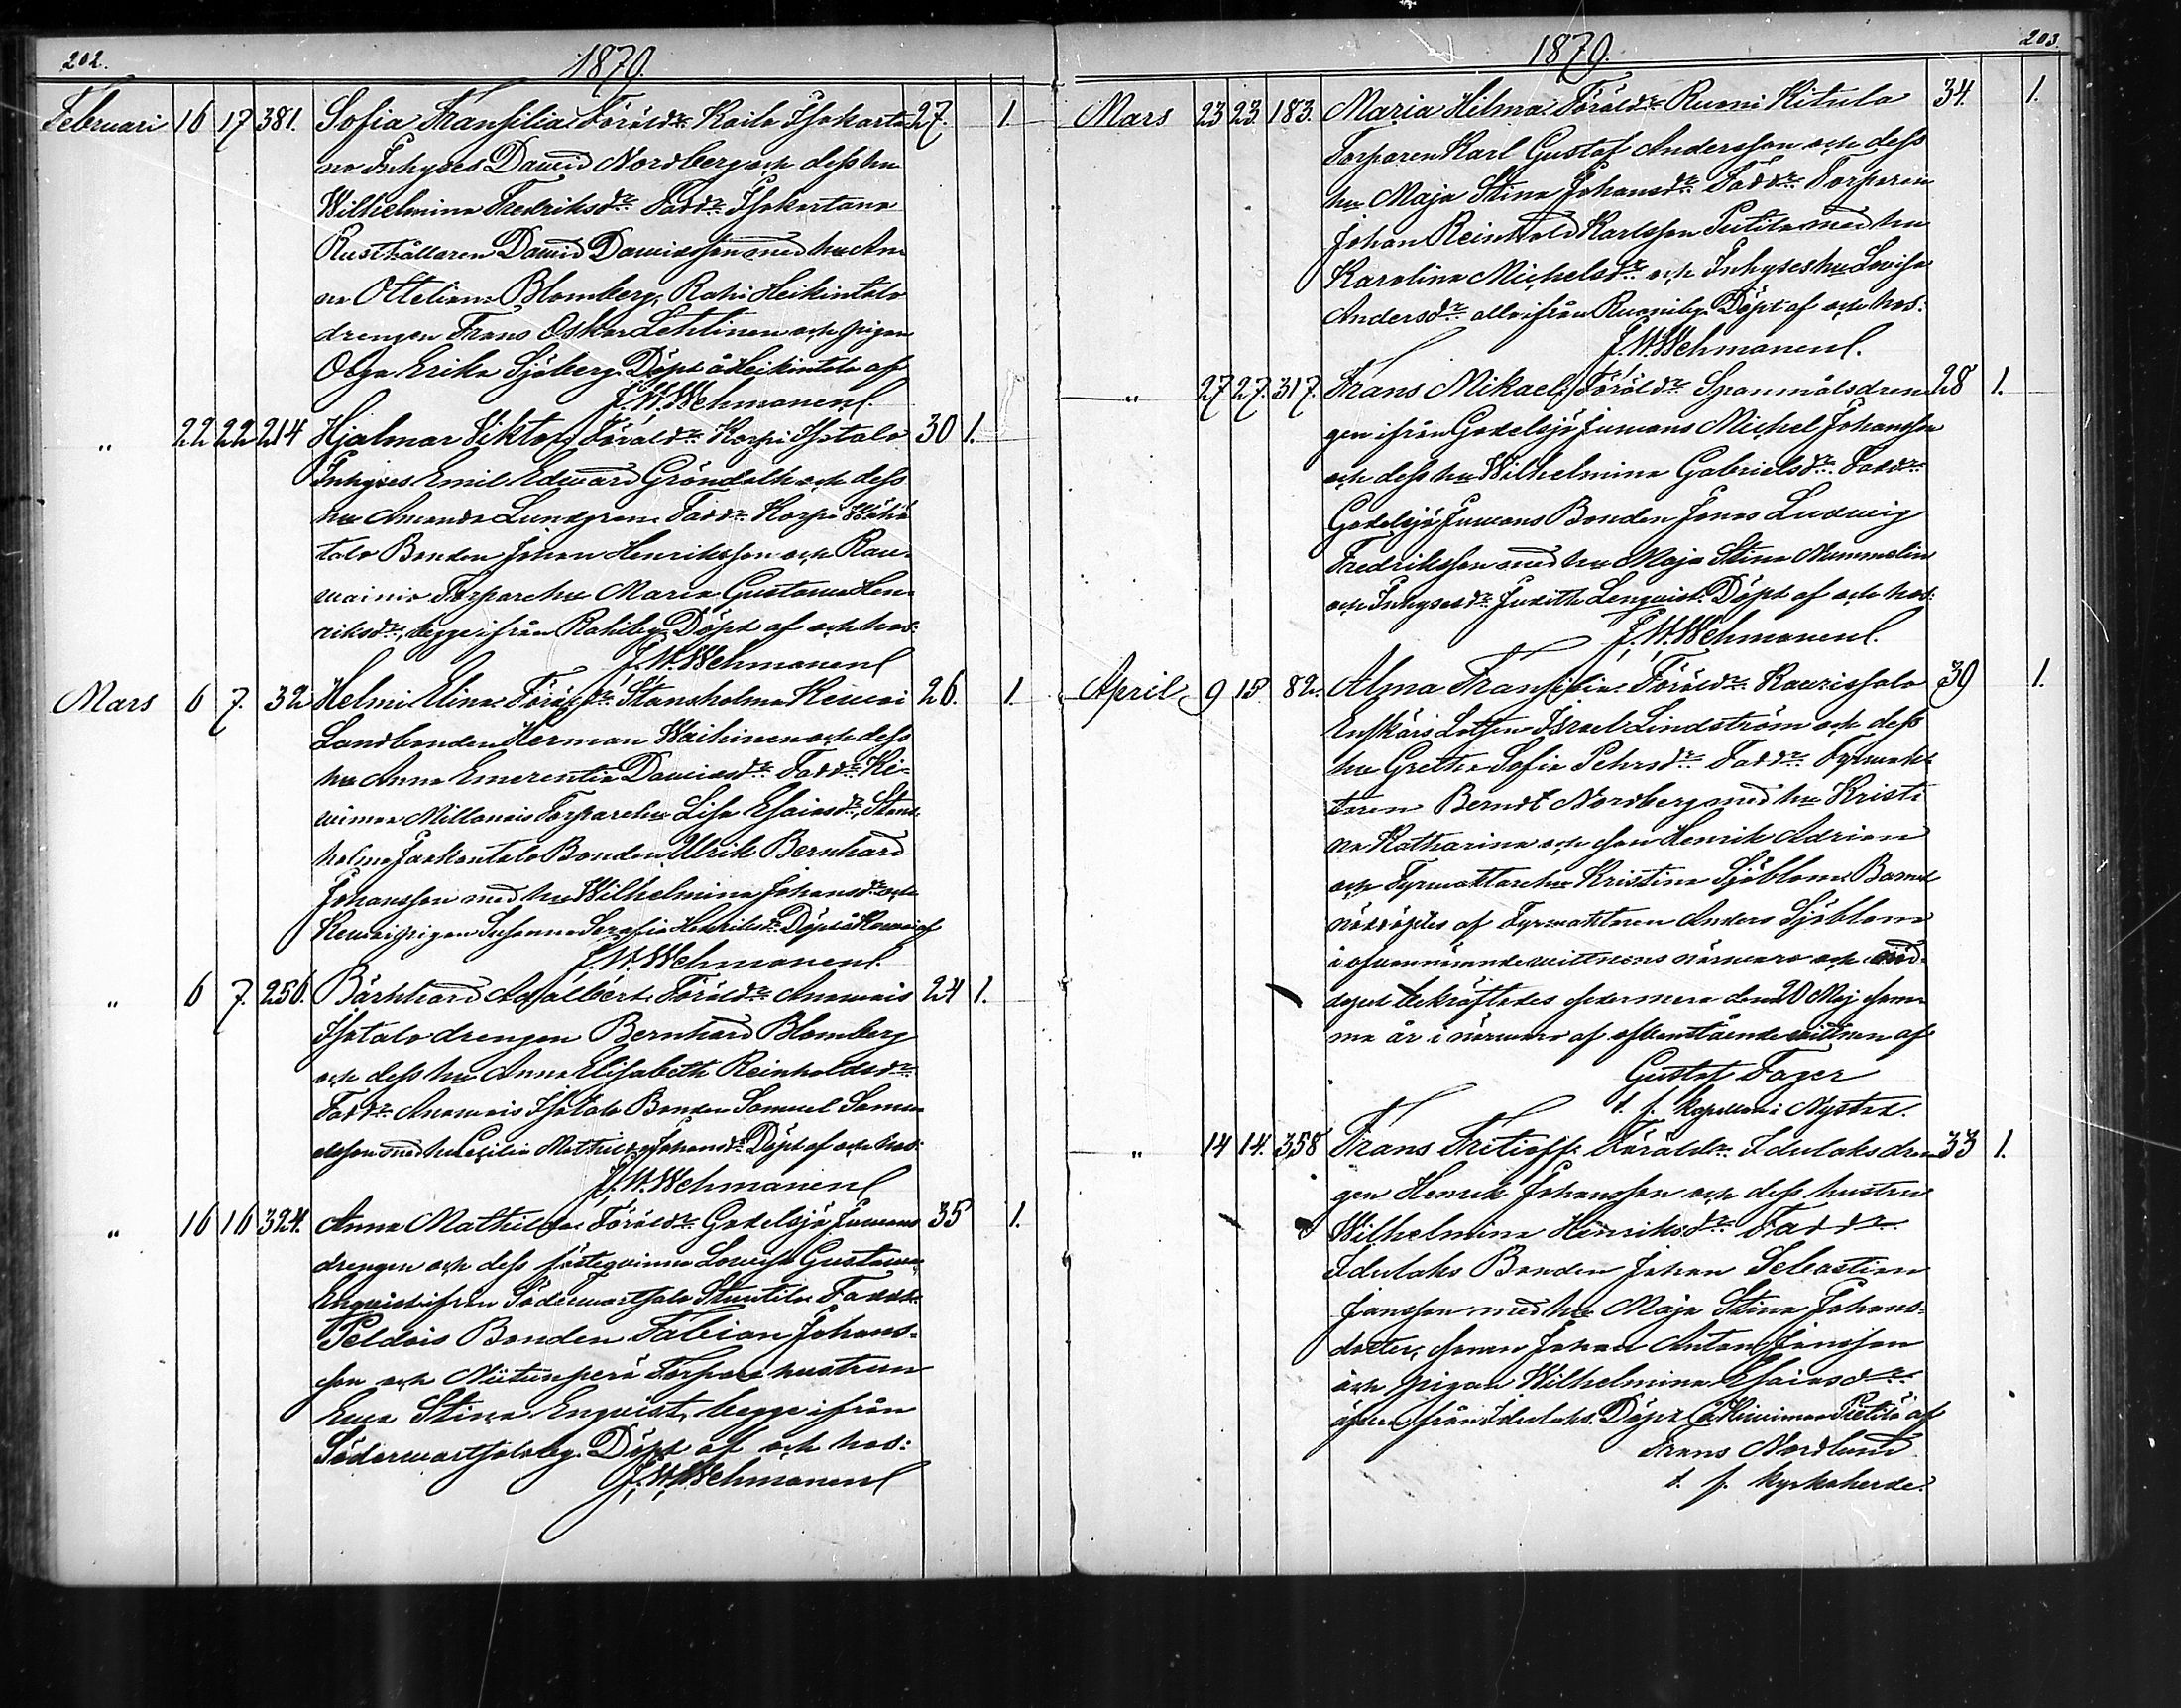 202.
1870.
Februari 16 17 381. Sofia Fransilia. Föräldr Kaila Isokarta 27. 1.
no Inhyses David Nordberg och dess hu
Wilhelmina Fredriksdr Faddr Isokartano
Rusthållaren David Davidsson med hu An
na Ottelina Blomberg, Rahi Heikintalo
drengen Frans Oskar Lehtinen och pigan
Olga Erika Sjöberg. Döpt å Heikintalo af
J. W. Wehmanen.
" 22 22 214 Hjalmar Viktor, Föräldr Korpi Isotalo 30 1.
Inhyses Emil Edward Gröndalh och dess
hu Amanda Lundgren. Faddr Korpi Wähä
talo Bonden Johan Henriksson och Rau-
wainio Torparehu Maria Gustawa Hen-
riksdr, begge ifrån Rahiby. Döpt af och hos:
J. W. Wehmanen
Mars 6 7. 32 Helmi Elina. Föräldr Stansholma Keuvai 26. 1.
Landbonden Herman Waihinen och dess
hu Anna Emerentia Davidsdr Faddr Ki-
vimaa Millonais Torparehu Lisa Esaiasdr, Stans-
holma Jaakontalo Bonden Ulrik Bernhard
Johansson med hu Wilhelmina Johansdr och
pigan Susanna Serafia Henriksdr. Döpt å af
J. W. Wehmanen.
" 6 7. 256. Bärhhard Adalbert. Föräldr Anawais 24 1.
Isotalo drengen Bernhard Blomberg
och dess hu Anna Elisabeth Reinholdsdr
Faddr Anawais Isotalo Bonden Samuel Samu
elsson med hu Cecilia Mathilda Johansdr. Döpt af och hos:
J. W. Wehmanen
" 16 16 324. Anna Mathilda. Föräldr Gadelsjö Jumans 35 1.
drengen och dess fästeqvinna Lovisa Gustawa
Enqvist ifrån Söderwartsalo Faddr
Peldois Bonden Fabian Johans-
son och Niitunperä Torpare hustrun
Ewa Stina Enqvist, begge ifrån
Söderwartsaloby. Döpt af och hos:
J. W. Wehmanen
203.
1870.
Mars 23 23. 183. Maria Hilma. Föräldr Ruoni Kitula 34. 1.
Torparen Karl Gustaf Andersson och dess
hu Maja Stina Johansdr Faddr Torparen
Johan Reinhold Karlsson med hu
Karolina Michelsdr och Inhyses hu Lovisa
Andersdr alla ifrån Ruoniby. Döpt af och hos:
J. W. Wehmanen.
" 27 27. 317. Frans Mikael, Föräldr Spanmålsdren 28 1.
gen ifrån Gadelsjö Jumans Michel Johansson
och dess hu Wilhelmina Gabrielsdr Faddr
Gadelsjö Jumans Bonden Jonas Ludwig
Fredriksson med hu Maja Stina Nummelin
och Inhysesdr Judith Lenqvist. Döpt af och hos:
J. W. Wehmanen.
April 9 15 82. Alma Fransilia. Föräldr Kaurissalo 39 1.
Enskärs Lotsen Israel Lindström och dess
hu Gretha Sofia Pehrsdr Faddr Fyrwakt
taren Berndt Nordberg med hu Kristi
na Katharina och son Henrik Adrian
och Fyrwaktarehu Kristina Sjöblom. Barnet
nöddöptes af Fyrwaktaren Anders Sjöblom
i ofvannämnde wittnens närwaro och nöd-
dopet bekräftades sedermera den 20 Maj sam-
ma år i närwaro af ofvanstående wittnen af
Gustaf Fager
t. f. kapellan i Nystad.
" 14 14. 358 Frans Fritioff. Föräldr Idulaks dren 33 1.
gen Henrik Johansson och dess hustru
Wilhelmina Henriksdr Faddr
Idulaks Bonden Johan Sebastian
Jansson med hu Maja Stina Johans-
dotter, sonen Johan Anton Jansson
och pigan Wilhelmina Esaiasdr
äfven från Idulaks. Döpt å Kiwimaa af
Frans Nordlund
t. f. kyrkoherde.